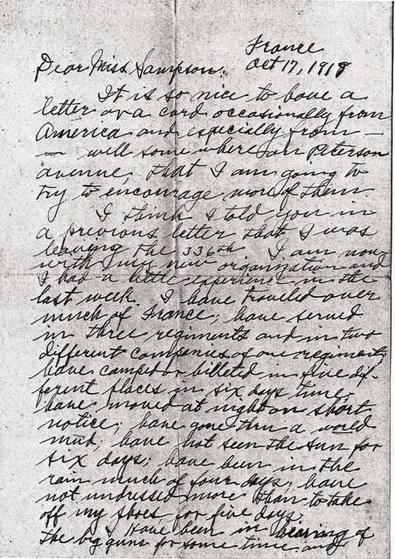 France
Oct 17, 1918
Dear Miss Sampson:
It is so nice to have a
letter or a card occasionally from
America and especially from —
— well somewhere on Peterson
avenue, that I am going to
try to encourage more of them
I think I told you in
a previous letter that I was
leaving the 336th. I am now
with my new organization and
I had a little experience in the
last week. I have traveled over
much of France; have served
in three regiments and in two
different companies of one regiment;
have camped or billeted in five dif-
ferent places in six days time,
have moved at night on short
notice; have gone thru a world
mud; have not seen the sun for
six days; have been in the
rain much of four days; have
not undressed more than to take
off my shoes for five days.
I have been in hearing of
the big guns for some time and